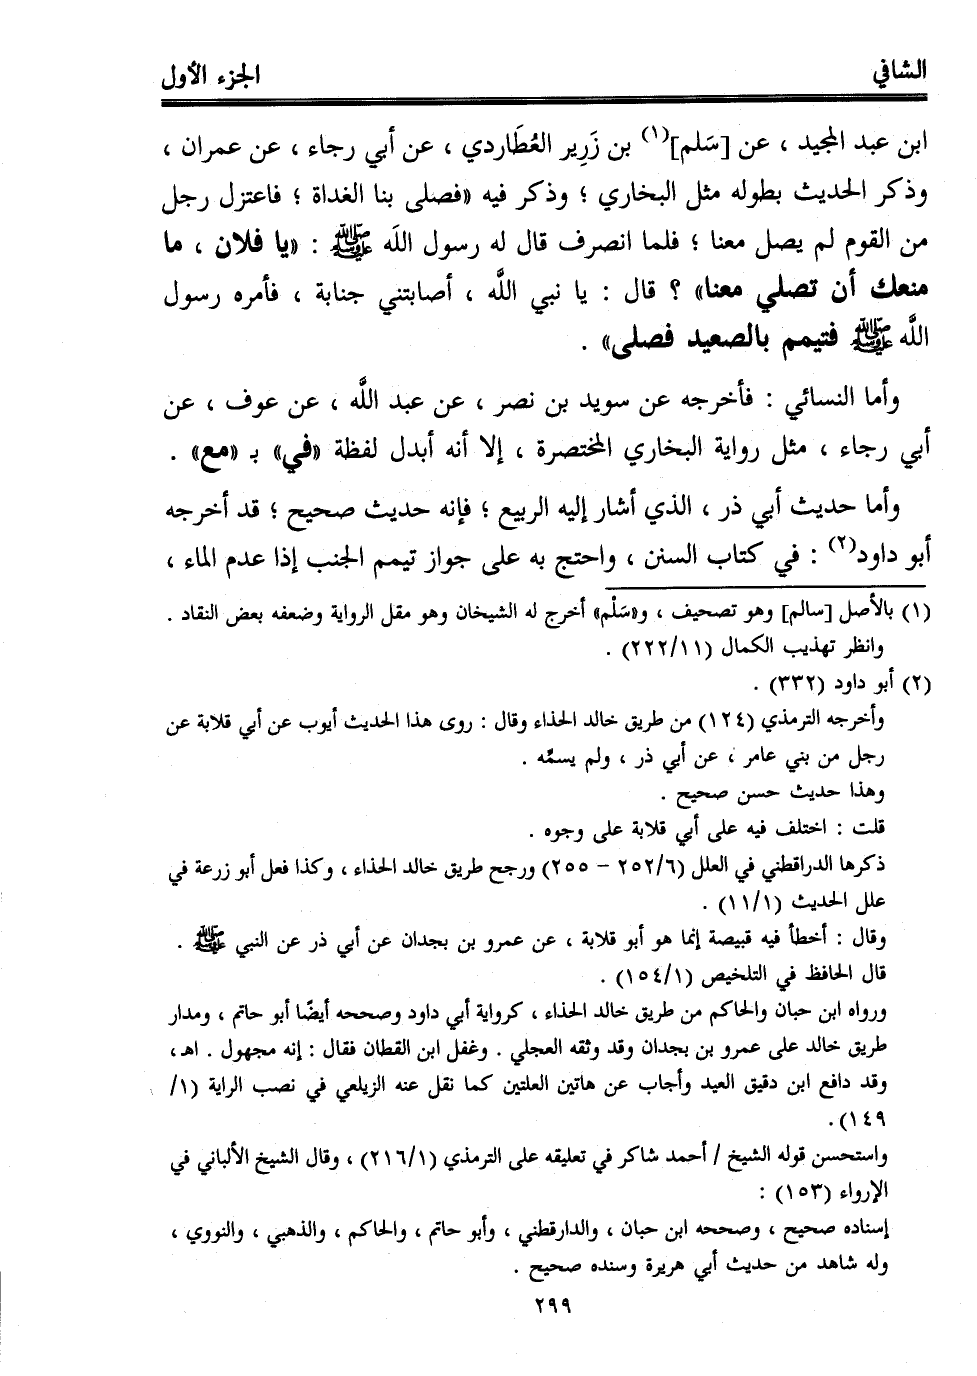 الشافي
الجزء الأول
ابن عبد المجيد ، عن [سَلم](١) بن زَرِير العُطَاردي ، عن أبي رجاء ، عن عمران ،
وذكر الحديث بطوله مثل البخاري ؛ وذكر فيه «فصلى بنا الغداة ؛ فاعتزل رجل
من القوم لم يصل معنا ؛ فلما انصرف قال له رسول اللَّه ﷺ : «يا فلان ، ما
منعك أن تصلي معنا» ؟ قال : يا نبي اللَّه ، أصابتني جنابة ، فأمره رسول
اللَّه ﷺ فتيمم بالصعيد فصلى» .
وأما النسائي : فأخرجه عن سويد بن نصر ، عن عبد اللَّه ، عن عوف ، عن
أبي رجاء ، مثل رواية البخاري المختصرة ، إلا أنه أبدل لفظة «في» بـ «مع» .
وأما حديث أبي ذر ، الذي أشار إليه الربيع ؛ فإنه حديث صحيح ؛ قد أخرجه
أبو داود(٢) : في كتاب السنن ، واحتج به على جواز تيمم الجنب إذا عدم الماء ،
(١) بالأصل [سالم] وهو تصحيف ، و«سَلْم» أخرج له الشيخان وهو مقل الرواية وضعفه بعض النقاد .
وانظر تهذيب الكمال (٢٢٢/١١) .
(٢) أبو داود (٣٣٢) .
وأخرجه الترمذي (١٢٤) من طريق خالد الحذاء وقال : روى هذا الحديث أيوب عن أبي قلابة عن
رجل من بني عامر ، عن أبي ذر ، ولم يسمِّه .
وهذا حديث حسن صحيح .
قلت : اختلف فيه على أبي قلابة على وجوه .
ذكرها الدراقطني في العلل (٢٥٢/٦ – ٢٥٥) ورجح طريق خالد الحذاء ، وكذا فعل أبو زرعة في
علل الحديث (١١/١) .
وقال : أخطأ فيه قبيصة إنما هو أبو قلابة ، عن عمرو بن بجدان عن أبي ذر عن النبي ﷺ .
قال الحافظ في التلخيص (١٥٤/١) .
ورواه ابن حبان والحاكم من طريق خالد الحذاء ، كرواية أبي داود وصححه أيضًا أبو حاتم ، ومدار
طريق خالد على عمرو بن بجدان وقد وثقه العجلي . وغفل ابن القطان فقال : إنه مجهول . اهـ ،
وقد دافع ابن دقيق العيد وأجاب عن هاتين العلتين كما نقل عنه الزيلعي في نصب الراية (١/
١٤٩).
واستحسن قوله الشيخ / أحمد شاكر في تعليقه على الترمذي (٢١٦/١) ، وقال الشيخ الألباني في
الإرواء (١٥٣) :
إسناده صحيح ، وصححه ابن حبان ، والدارقطني ، وأبو حاتم ، والحاكم ، والذهبي ، والنووي ،
وله شاهد من حديث أبي هريرة وسنده صحيح .
٢٩٩